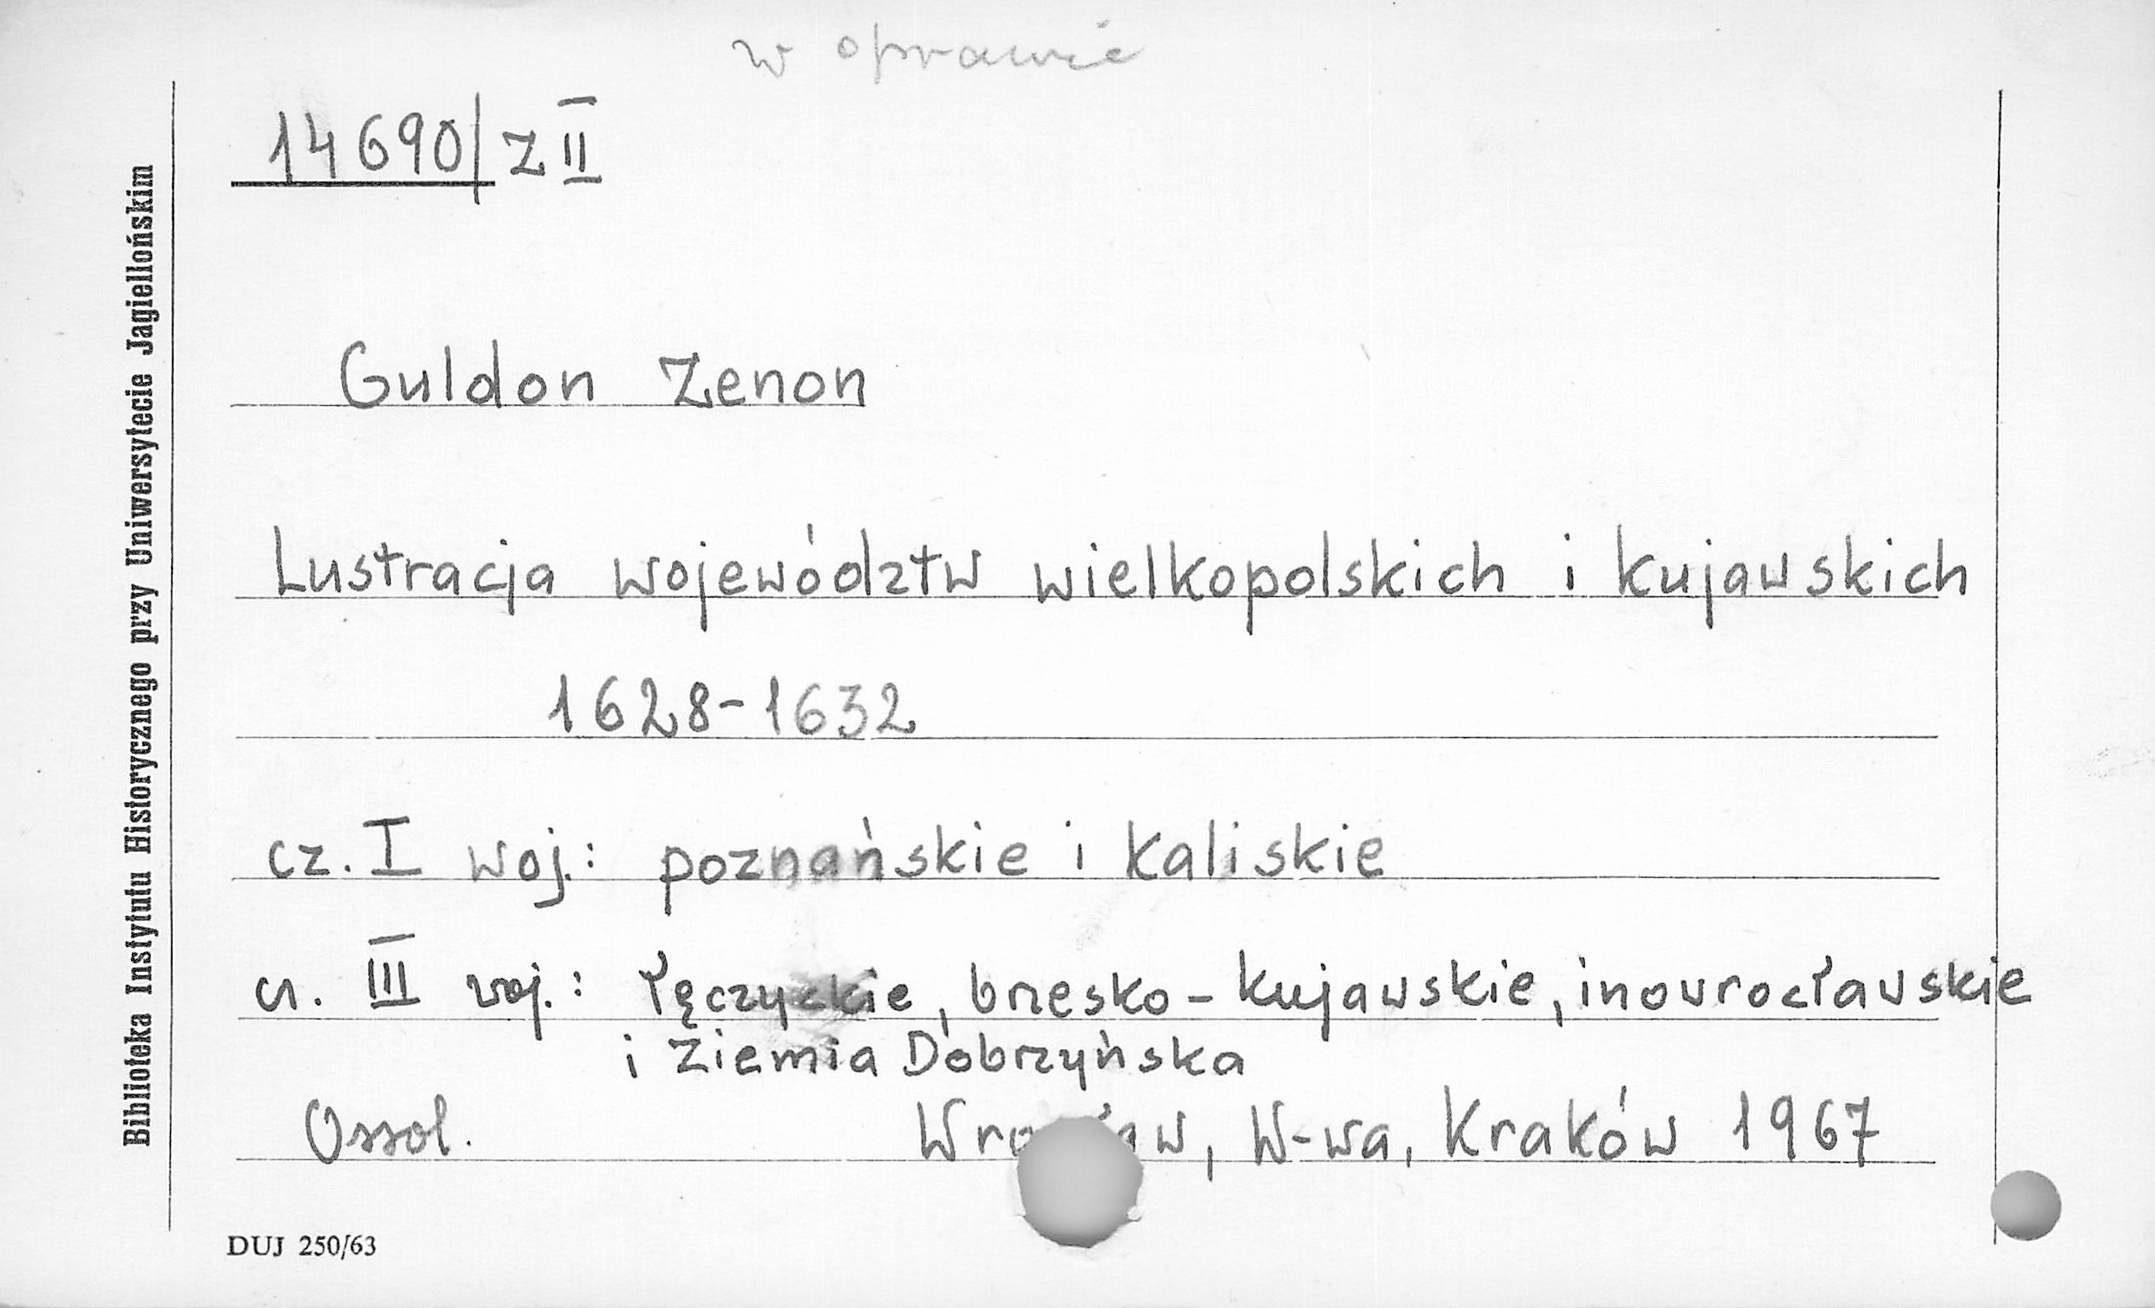 w oprawie
14690/Z II
Guldon Zenon
Lustracja województw wielkopolskich i kujawskich
1628-1632
cz. I woj.: poznańskie i kaliskie
cz. III woj.: łęczyckie, brzesko-kujawskie, inowrocławskie
i Ziemia Dobrzyńska
Ossol. Wrocław, W-wa, Kraków 1967
DUJ 250/63
Biblioteka Instytutu Historycznego przy Uniwersytecie Jagiellońskim